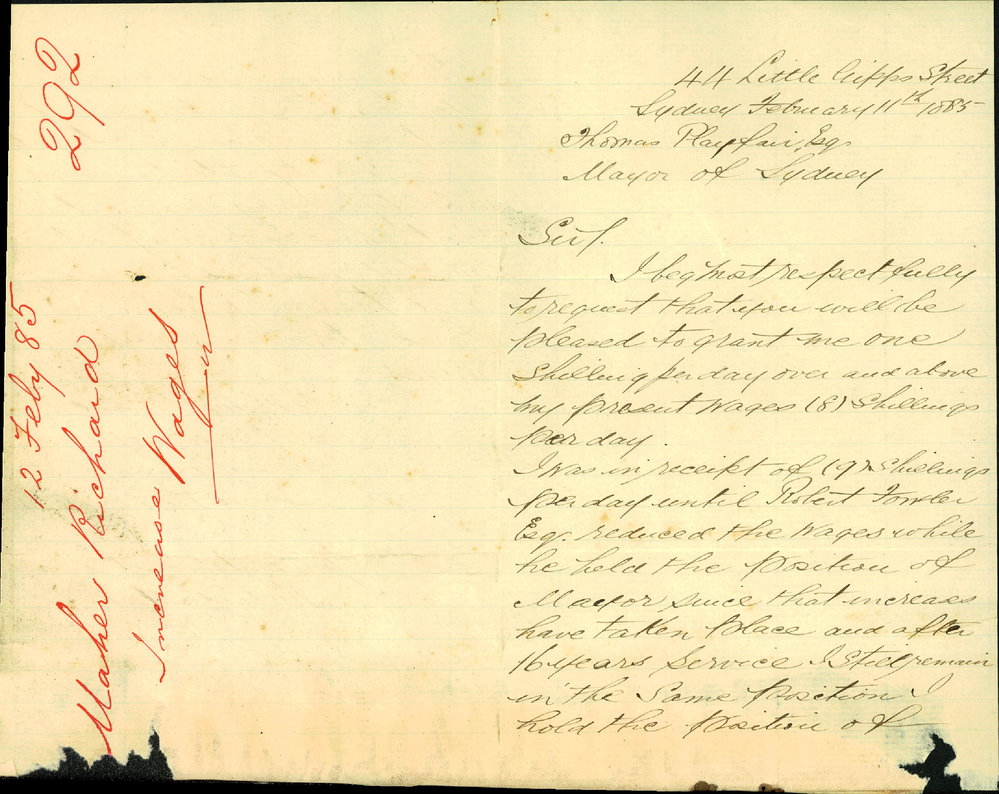 292
12 Feby 85
Maher Richard
Increase Wages
44 Little Gipps Street
Sydney February 11th 1885
Thomas Playfair, Esq.
Mayor of Sydney
Sir/.
I beg most respectfully
to request that you will be
pleased to grant me one
Shilling per day over and above
my present Wages (8) Shillings
per day.
I was in receipt of (9) Shillings
per day until Robert Fowler
Esq. reduced the Wages while
he held the Position of
Mayor since that increase
have taken place and after
16 years service I Still remain
in the Same Position I
hold the Position of